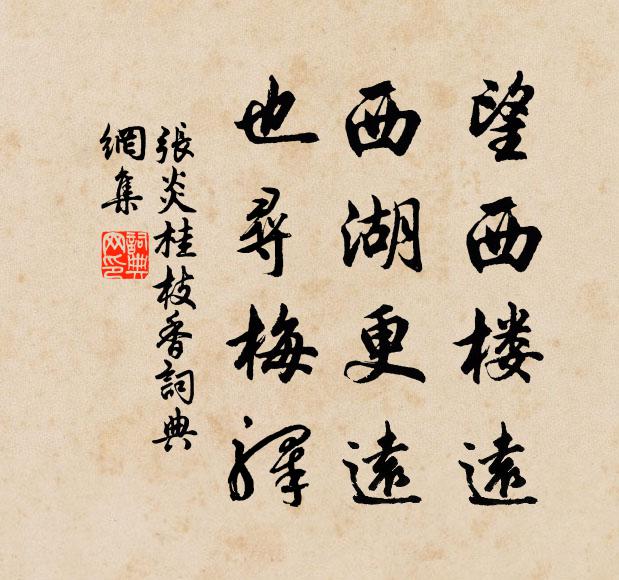 望西楼遠
西湖更遠
也尋梅驛
張炎桂枝香詞典
網集
詞典
网印